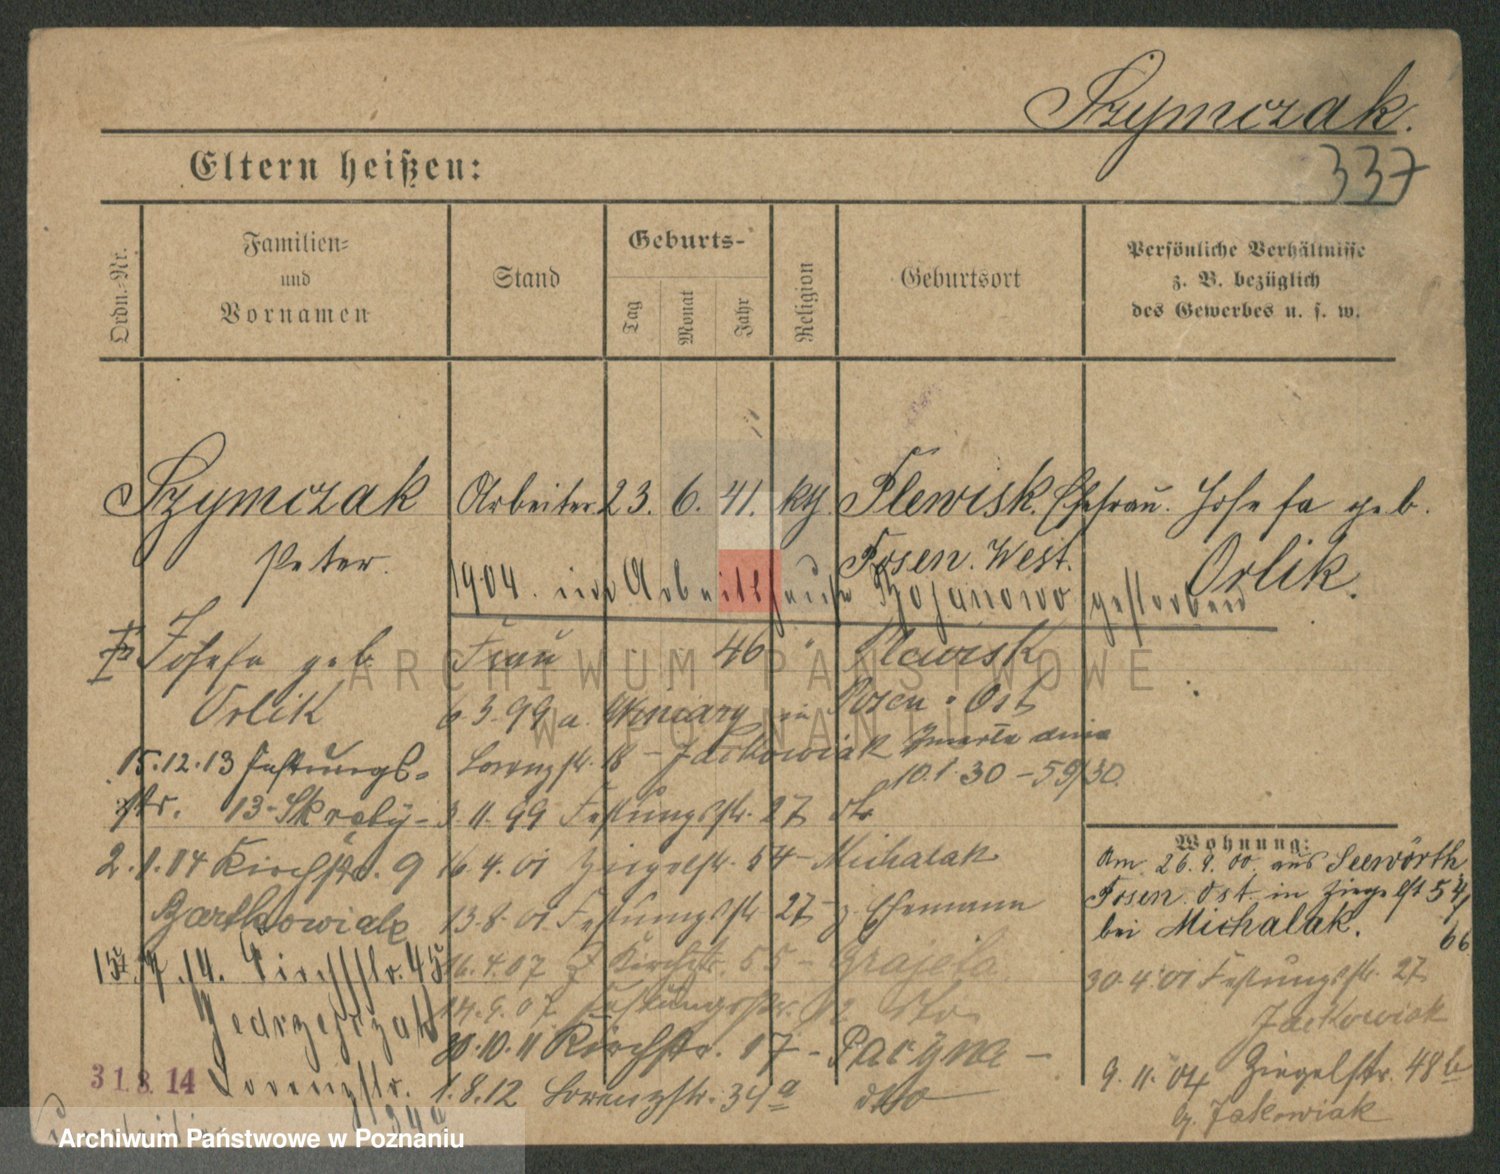 Szymczak.
337
Eltern heißen:
Ordn.-Nr.
Familien-
und
Vornamen
Stand
Geburts-
Tag
Monat
Jahr
Religion
Geburtsort
Persönliche Verhältnisse
z. B. bezüglich
des Gewerbes u. s. w.
Szymczak Arbeiter 23. 6. 41. kth. Plewisk. Ehefrau. Josefa geb.
Peter. Posen. West. Orlik.
1904. im Arbeitshause Bojanowo gestorben
Josefa geb. Frau 46 " Plewisk
Orlik Posen-Ost
6 3.99 a. Winiary in
15.12.13 Festungs- Lorenzstr. 18 - Jackowiak Zmarła dnia
10.1.30 - 59/30.
str. 13- 3.11.99 Festungsstr. 27 dto
2.1.14 Kirchstr. 9 16.4.01 Ziegelstr. 54 - Michalak
Bartkowiak 13.8.01 Festungsstr. 27 - z. Ehemann
Kirchstr. 45 16.4.07 Kirchstr. 55 - Grajeta
Jedrzejczak 14.9.07 Festungsstr. dto
30.10.11 Kirchstr. 17 -
31.8.14 Lorenzstr. 1.8.12 Lorenzstr. 34a dto
34a
Wohnung:
Am 26.9.00 aus Seewörth
Posen. Ost in Ziegelst 54/
bei Michalak. 66
30.4.01 Festungsstr. 27
Jackowiak
9.11.04 Ziegelstr. 48b
b. Jakowiak
ARCHIWUM PAŃSTWOWE
W POZNANIU
Archiwum Państwowe w Poznaniu